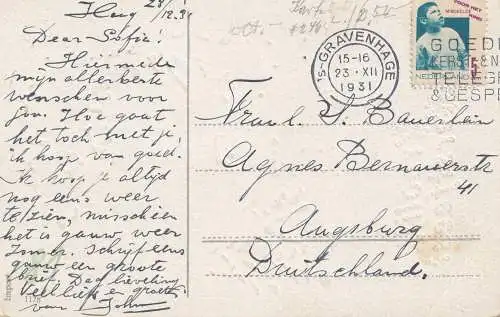 Haag 23/12.31
Dear Sofia!
Hiermede
mijn allerbeste
wenschen voor
jou. Hoe gaat
het toch met je
ik hoop van goed.
Ik hoop je altijd
nog eens weer
te zien, misschien
het is gauw weer
Zomer. Schrijf eens
gauw een groote
brief. Dag lieveling
Veel liefs en groeten
van John
1178
's-GRAVENHAGE
15-16
23 · XII
1931
VOOR HET
KIND
5
NEDERLAND
GOEDE
KERST- & N
TELEG
& GESP
Fraul. S. Bauerlein
Agnes Bernauerstr
41
Augsburg
Duitschland.